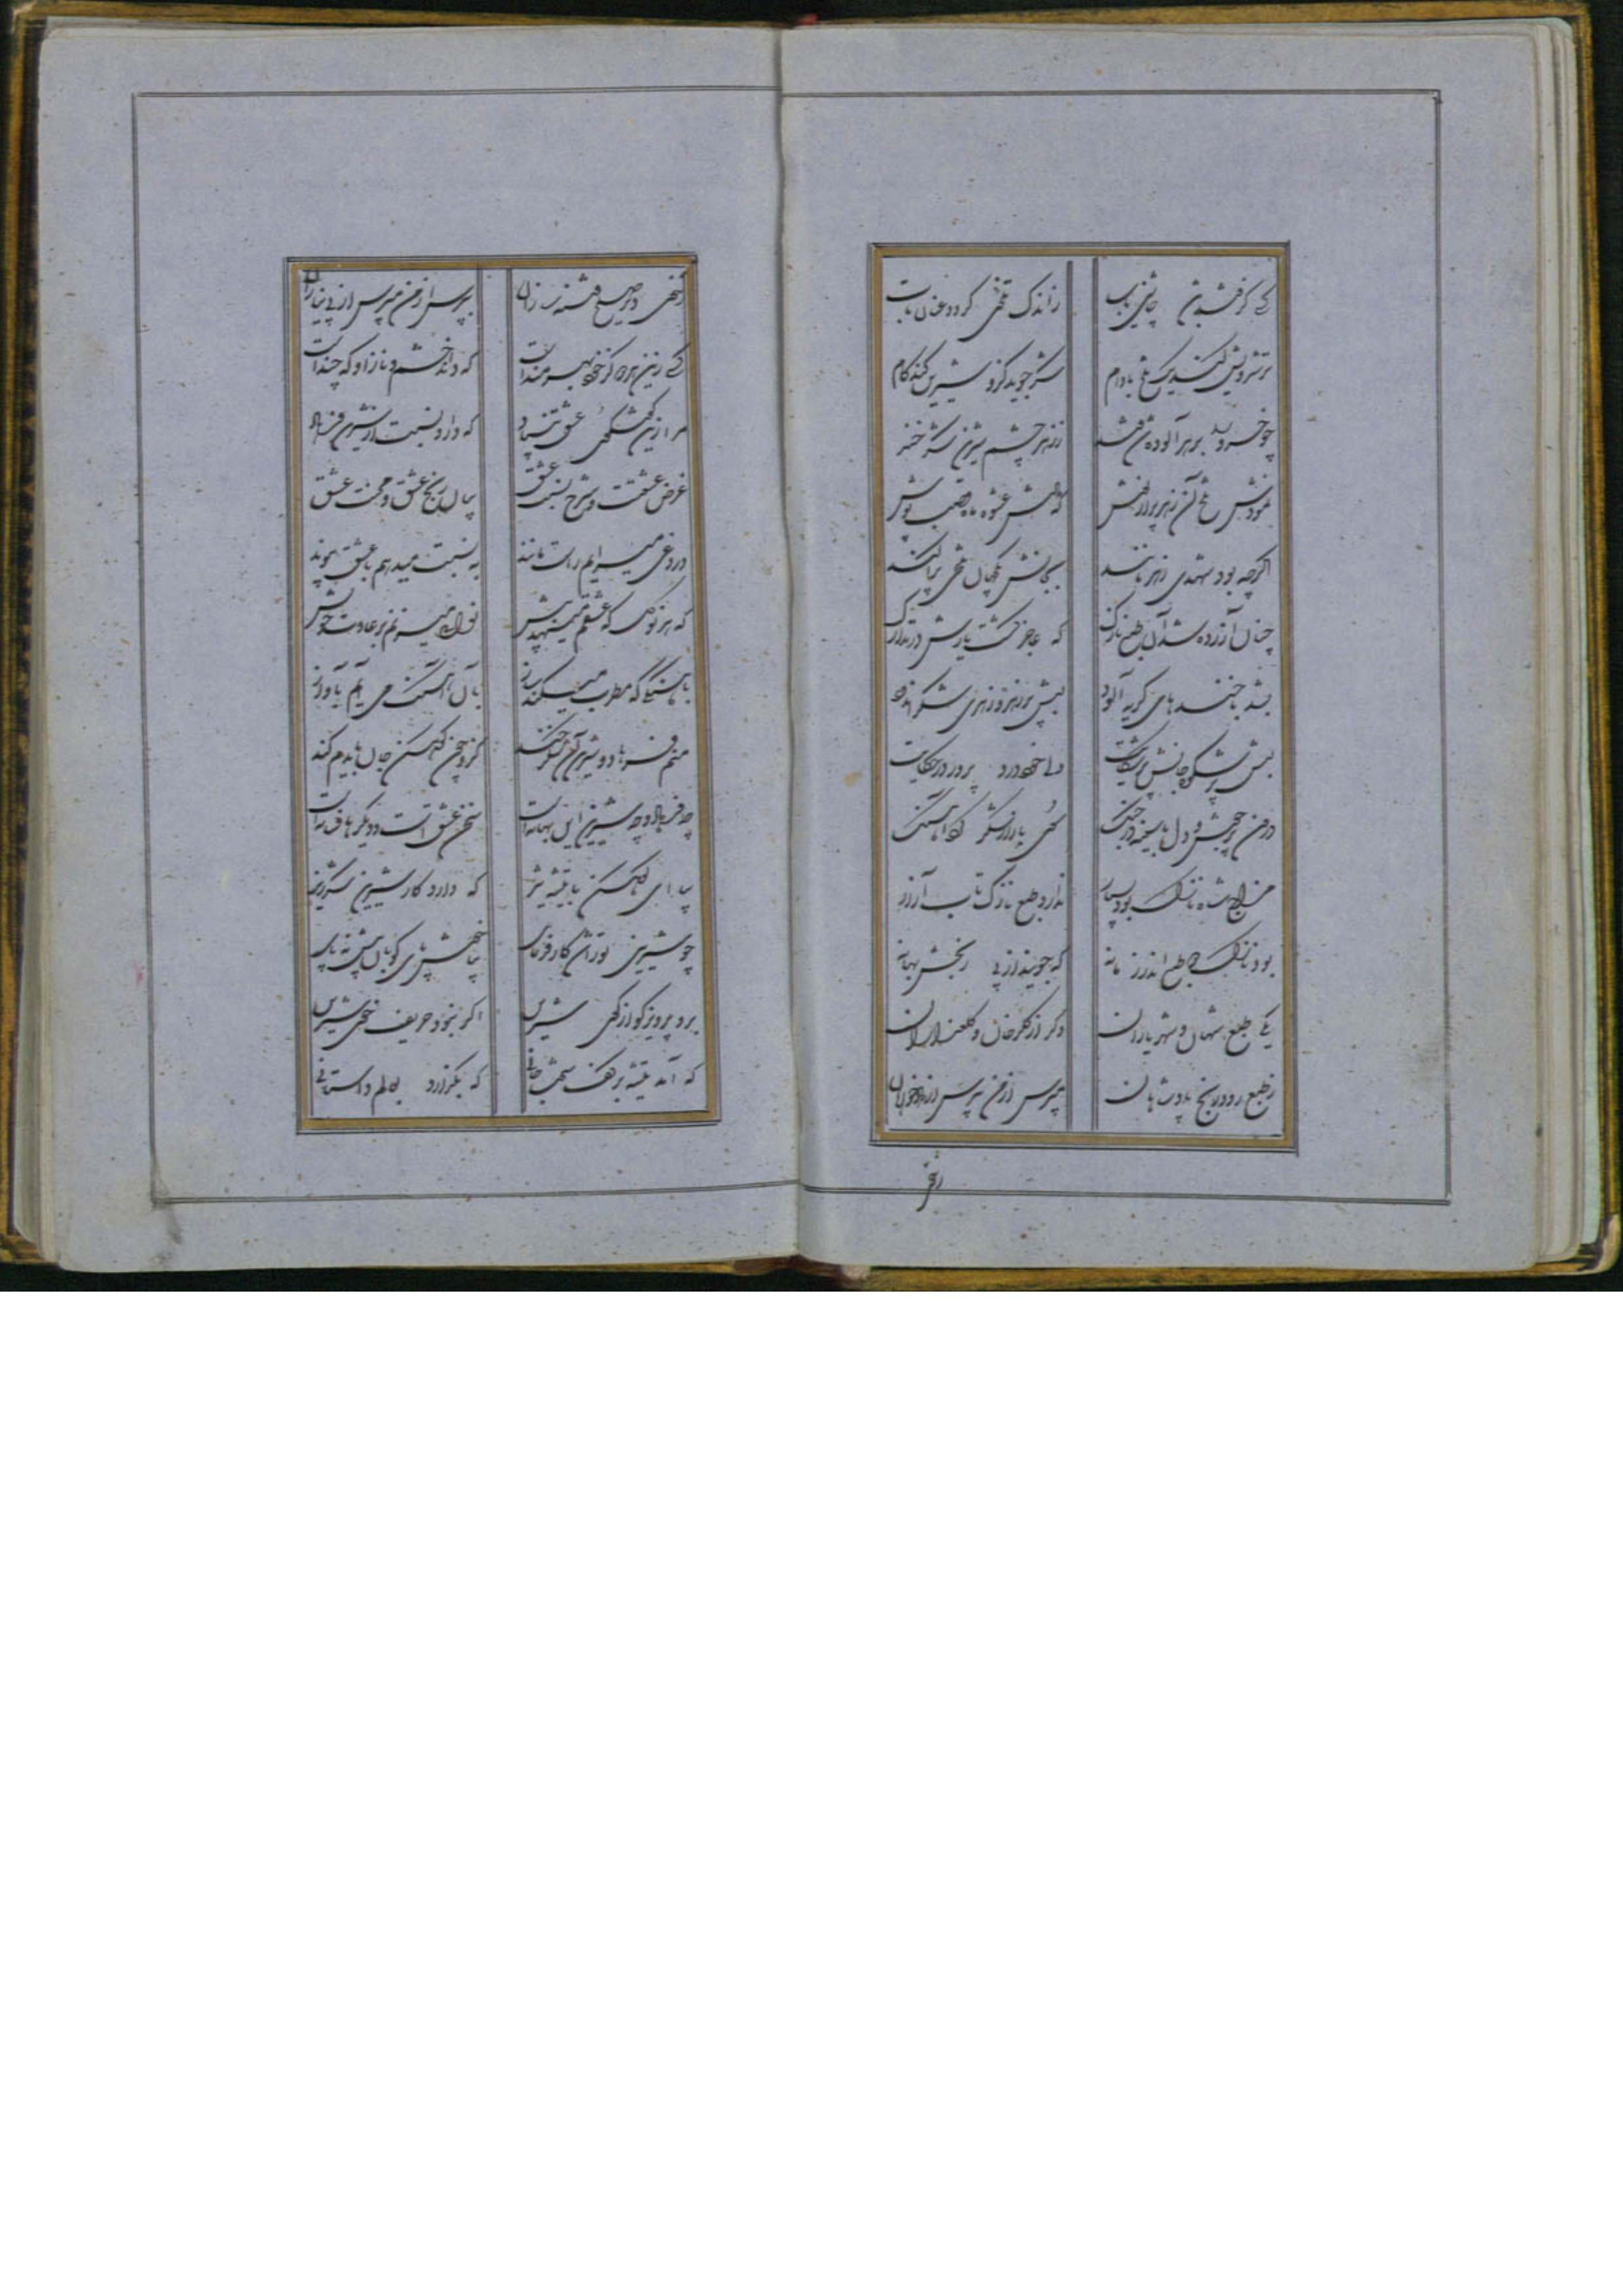 کسی کز قند باشد چاشنی یاب ز اندک تلخیی گردد عنان تاب
ترشرویی کند یک تلخ بادام شکر جوید کزو شیرین کند کام
چو خسرو دید زهر آلوده آن قند ز زهر چشم شیرین شکر خند
نمودش تلخ آن زهر پر از نوش نوش
اگرچه بود شهدی زهر مانند بجانش تلخی پراکند
چنان آزرده شد آن طبع نازک که عاجز گشت یارش در تدارک
بشد با خنده های گریه آلود لبش پر زهر و زهری شکر اندود
لبش پر شکوه جانش پر شکایت درد پرور در حکایت
درون پر جوش و دل با سینه در جنگ سوی بازار شکر کرد آهنگ
مزاج شاه نازک بود بسیار ندارد طبع نازک تاب آزار
بود نازک دو طبع اندر زمانه که جویند از پی رنجش بهانه
یکی طبع شهان و شهریاران دگر از گلرخان و گلعذاران
ز طبع زود رنج پادشاهان مپرس از من بپرس از دادخواهان
ز خوی
ز خوی دیر صلح فتنه سازان بپرس از من مپرس از بی نیازان
کسی زین هر دو گر خود بهره مند است که داند خشم و ناز او که چند است
مرا زین گفتگوی عشق بنیاد که دارد نسبت از شیرین و فرهاد
غرض عشقست و شرح نسبت عشق بیان رنج عشق و محنت عشق
دروغی میسرایم راست مانند به نسبت میدهم با عشق پیوند
که هر نوگل که عشقم مینهد پیش نوایی میزنم بر عادت خویش
بآهنگی که مطرب میکند ساز بآن آهنگ می آیم بآواز
منم فرهاد و شیرین آن شکرخند کزو چون کوهکن جان بایدم کند
چه فرهاد و چه شیرین این بهانه است سخن عشق است و دیگرها فسانه است
بیا ای کوهکن با تیشه تیز که دارد کار شیرین شکرریز
چو شیرینی تو را شد کارفرمای بیا خوش پای کوبان پیش نه پای
برو پرویز گو از کوی شیرین اگر نبود حریف خوی شیرین
که آمد تیشه بر کف سخت جانی که بگذارد بعالم داستانی